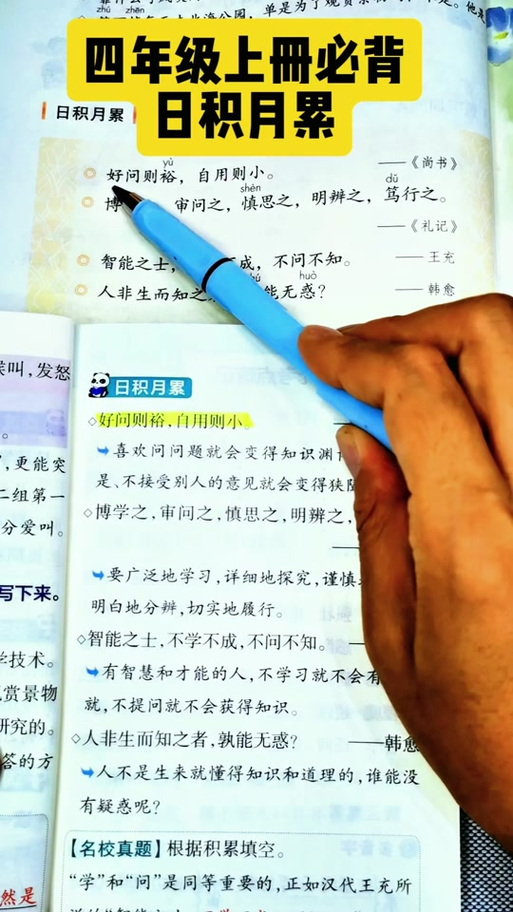 四年级上册必背
日积月累
zhú zhēn
日积月累
yù
好问则裕，自用则小。 ——《尚书》
shèn dǔ
博 审问之，慎思之，明辨之，笃行之。
——《礼记》
智能之士， 成，不问不知。 ——王充
huò
人非生而知之 能无惑？ ——韩愈
日积月累
好问则裕，自用则小。
喜欢问问题就会变得知识渊
是、不接受别人的意见就会变得狭
博学之，审问之，慎思之，明辨之，
要广泛地学习，详细地探究，谨慎
明白地分辨，切实地履行。
智能之士，不学不成，不问不知。
有智慧和才能的人，不学习就不会有
就，不提问就不会获得知识。
人非生而知之者，孰能无惑？ ——韩愈
人不是生来就懂得知识和道理的，谁能没
有疑惑呢？
【名校真题】根据积累填空。
“学”和“问”是同等重要的，正如汉代王充所
叫，发怒
，更能突
二组第一
分爱叫。
写下来。
学技术。
赏景物
研究的。
答的方
然是